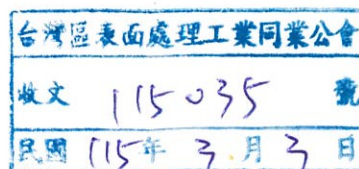 台灣區表面處理工業同業公會
收文 115035 號
民國 115年 3月 3日